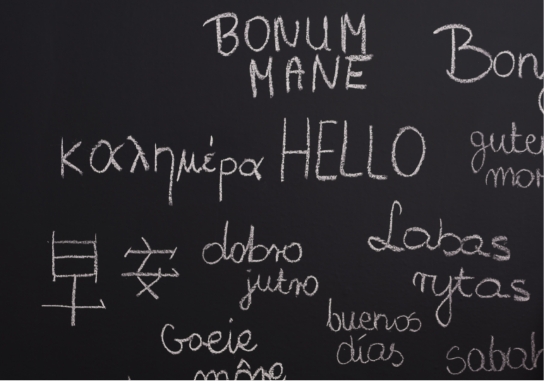 BONUM
MANE
Bon
καλημέρα
HELLO
gute
mor
早安
dobro
jutro
Labas
rytas
Goeie
môre
buenos
días
sabah